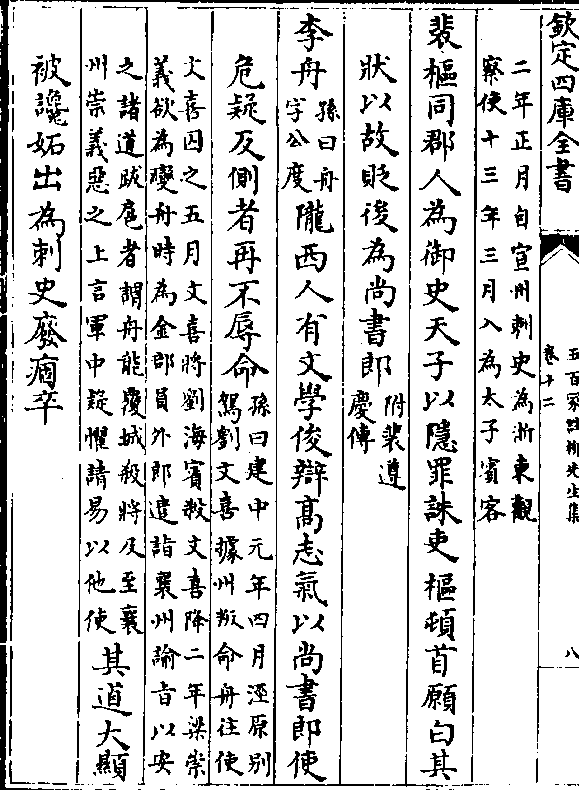 欽定四庫全書
五百家註柳先生集
卷十二
八
二年正月自宣州刺史為浙東觀
察使十三年三月入為太子賓客
裴樞同郡人為御史天子以隱罪誅吏樞頓首願白其
狀以故貶後為尚書郎附裴遵
慶傳
李舟孫曰舟
字公度隴西人有文學俊辯高志氣以尚書郎使
危疑反側者再不辱命孫曰建中元年四月涇原别
駕劉文喜據州叛命舟往使
文喜囚之五月文喜將劉海賓殺文喜降二年梁崇
義欲為變舟時為金部員外郎遣詣襄州諭旨以安
之諸道跋扈者謂舟能覆城殺將及至襄
州崇義惡之上言軍中疑懼請易以他使其道大顯
被讒妬出為刺史廢痼卒